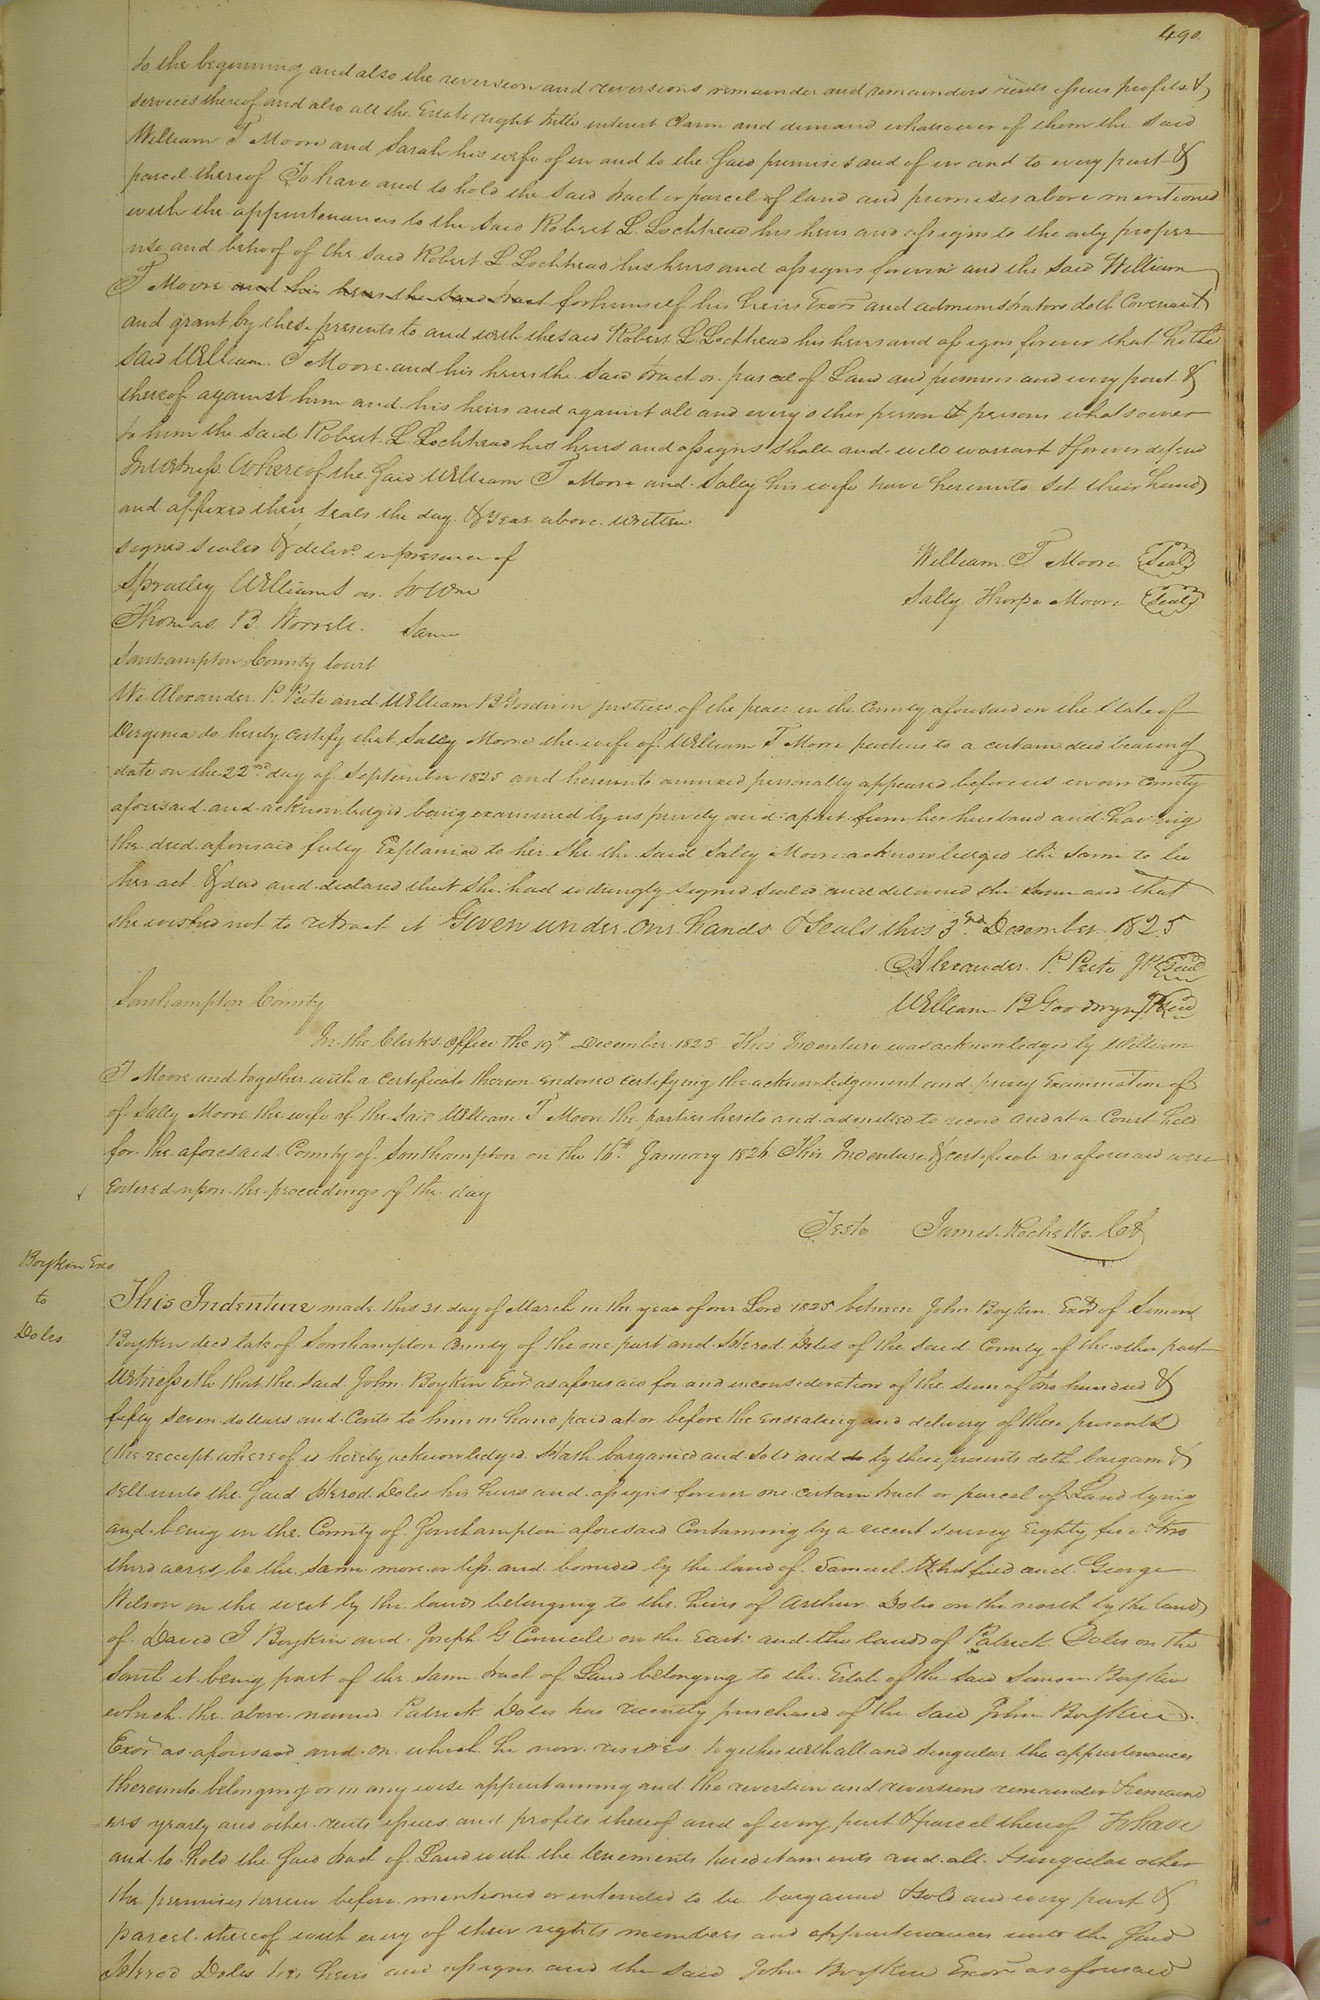 490
to the beginning and also the reversion and reversions remainder and remainders rents issues profits &
services thereof and also all the Estate right title interest Claim and demand whatsoever of them the said
William T Moore and Sarah his wife of in and to the said premises and of in and to every part &
parcel thereof To have and to hold the said tract or parcel of land and premises above mentioned
with the appurtenances to the said Robert L. Lochhead his heirs and assigns to the only proper
use and behoof of the said Robert L. Lochhead his heirs and assigns forever and the said William
T Moore and his heirs the said tract for himself his heirs Exors and administrators doth Covenant
and grant by these presents to and with the said Robert L Lochhead his heirs and assigns forever that he the
said William T Moore and his heirs the said tract or parcel of Land and premises and every part &
thereof against him and his heirs and against all and every other person & persons whatsoever
to him the said Robert L Lochhead his heirs and assigns shall and will warrant & forever defend
In witness Whereof the said William T Moore and Sally his wife have hereunto set their hands
and affixed their seals the day & year above written
signed sealed & delivd in presence of
William T Moore Seal
Spratley Williams as to Wm
Sally Thorpe Moore Seal
Thomas B Worrell Same
Southampton County Court
We Alexander P. Peete and William B Goodwin justices of the peace in the County aforesaid in the State of
Virginia do hereby certify that Sally Moore the wife of William T Moore parties to a certain deed bearing
date on the 22nd day of September 1825 and hereunto annexed personally appeared before us in our County
aforesaid and acknowledged being examined by us privily and apart from her husband and having
the deed aforesaid fully Explained to her she the said Sally Moore acknowledged the same to be
her act & deed and declared that she had willingly signed sealed and delivered the same and that
she wished not to retract it Given under our hands & seals this 3rd December 1825
Alexander P Peete JP Seal
Southampton County
William B Goodwyn JP Seal
In the Clerks Office the 19th December 1825 This Indenture was acknowledged by William
T Moore and together with a certificate thereon endorsed certifying the acknowledgement and privy Examination of
of Sally Moore the wife of the said William T Moore the parties hereto and admitted to record and at a Court held
for the aforesaid County of Southampton on the 16th January 1826 This Indenture & certificate as aforesaid were
Entered upon the proceedings of the day
Teste James Rochelle CC
Boykin Exo
to
Doles
This Indenture made this 21 day of March in the year of our Lord 1825 between John Boykin Exor of Simon
Boykin decd late of Southampton County of the one part and Herod Doles of the said County of the other part
Witnesseth that the said John Boykin Exor as aforesaid for and in consideration of the sum of two hundred &
fifty seven dollars and Cents to him in hand paid at or before the ensealing and delivery of these presents
(the receipt whereof is hereby acknowledged Hath bargained and sold and do by these presents doth bargain &
sell unto the said Herod Doles his heirs and assigns forever one certain tract or parcel of Land lying
and being in the County of Southampton aforesaid Containing by a recent survey Eighty five two
third acres be the same more or less and bounded by the land of Samuel and George
Wilson on the west by the lands belonging to the heirs of Arthur Doles on the north by the lands
of David J Boykin and Joseph G on the East and the lands of Patrick Doles on the
South it being part of the same tract of Land belonging to the Estate of the said Simon Boykin
which the above named Patrick Doles has recently purchased of the said John Boykin
Exor as aforesaid and on which he now resides together with all and singular the appurtenances
thereunto belonging or in any wise appertaining and the reversion and reversions remainder & remaind
ers yearly and other rents issues and profits thereof and of every part & parcel thereof To have
and to hold the said tract of Land with the tenements hereditaments and all & singular other
the premises herein before mentioned or intended to be bargained & sold and every part &
parcel thereof with every of their rights members and appurtenances unto the said
Herod Doles his heirs and assigns and the said John Boykin Exor as aforesaid